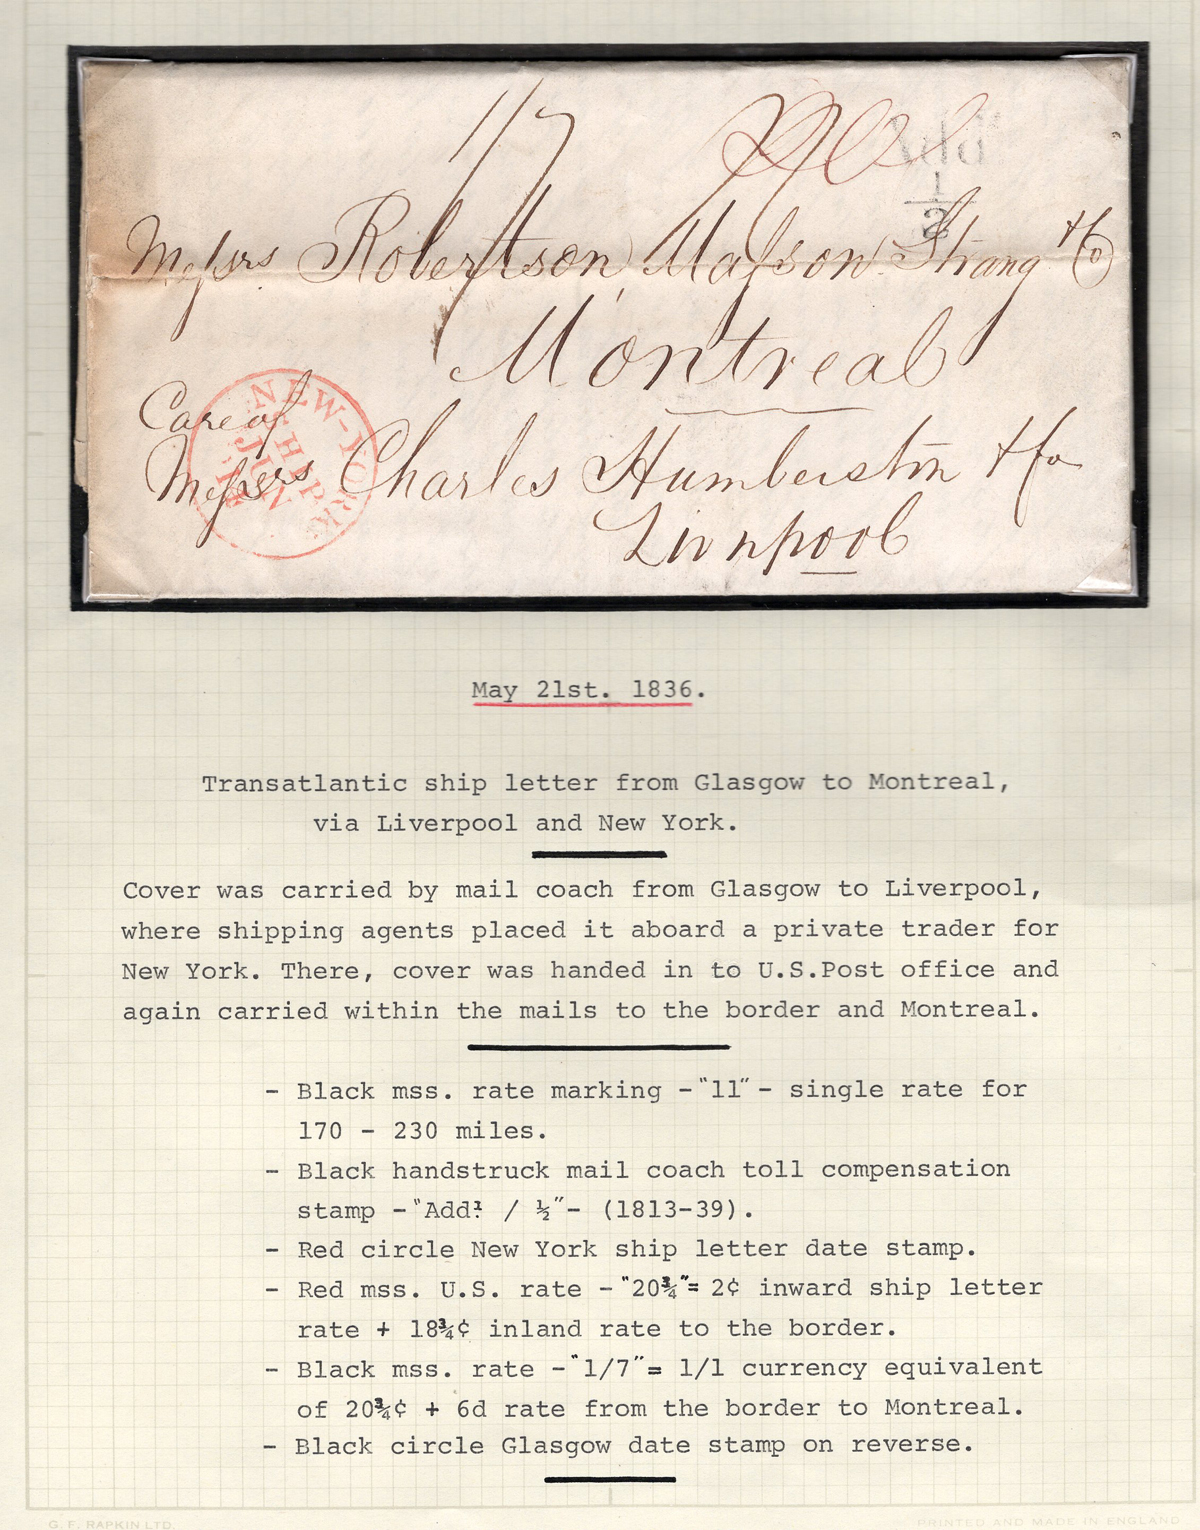 1/7
Add:
1/2
Messrs Robertson, Masson Strang & Co
Montreal
Care of
Messrs Charles Humberston & Co
Liverpool
NEW-YORK
SHIP
JUN
May 21st. 1836.
Transatlantic ship letter from Glasgow to Montreal,
via Liverpool and New York.
Cover was carried by mail coach from Glasgow to Liverpool,
where shipping agents placed it aboard a private trader for
New York. There, cover was handed in to U.S.Post office and
again carried within the mails to the border and Montreal.
- Black mss. rate marking -"11"- single rate for
170 - 230 miles.
- Black handstruck mail coach toll compensation
stamp -"Add: / ½"- (1813-39).
- Red circle New York ship letter date stamp.
- Red mss. U.S. rate -"20¾"= 2¢ inward ship letter
rate + 18¾¢ inland rate to the border.
- Black mss. rate -"1/7"= 1/1 currency equivalent
of 20¾¢ + 6d rate from the border to Montreal.
- Black circle Glasgow date stamp on reverse.
G. F. RAPKIN LTD.
PRINTED AND MADE IN ENGLAND